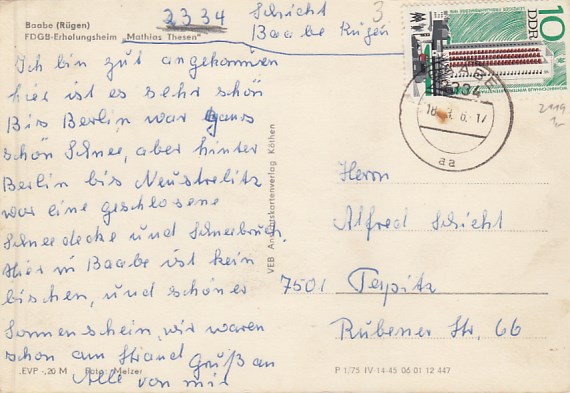 2334 Schicht
Baabe Rügen
3
Baabe (Rügen)
FDGB-Erholungsheim „Mathias Thesen"
Ich bin gut angekommen
hier ist es sehr schön
Bis Berlin war ganz
schön Schnee, aber hinter
Berlin bis Neustrelitz
war eine geschlosene
Schneedecke und Schneebruch.
Hier in Baabe ist kein
bischen, und schöner
Sonnenschein, wir waren
schon am Strand Gruß an
Alle von mir
EVP -,20 M Foto: Melzer
VEB Ansichtskartenverlag Köthen
10
DDR
2334
aa
2119
Herrn
Alfred Schicht
7501 Terpitz
Rubener Str. 66
P 1/75 IV-14-45 06 01 12 447